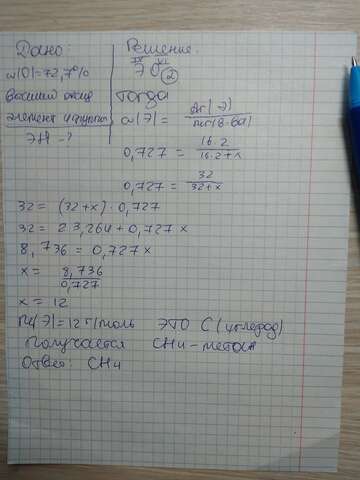 Дано:
ω(O)=72,7%
высший оксид
элемент 4 группы
ЭН - ?
Решение.
IV II
ЭO2
Тогда
ω(Э) = Ar(Э)
0,727 = 16·2 / 16·2+x
0,727 = 32 / 32+x
32 = (32+x)·0,727
32 = 23,264+0,727x
8,736 = 0,727x
x = 8,736 / 0,727
x = 12
M(Э)=12 г/моль это C (углерод)
Получается CH4 - метан
Ответ: CH4